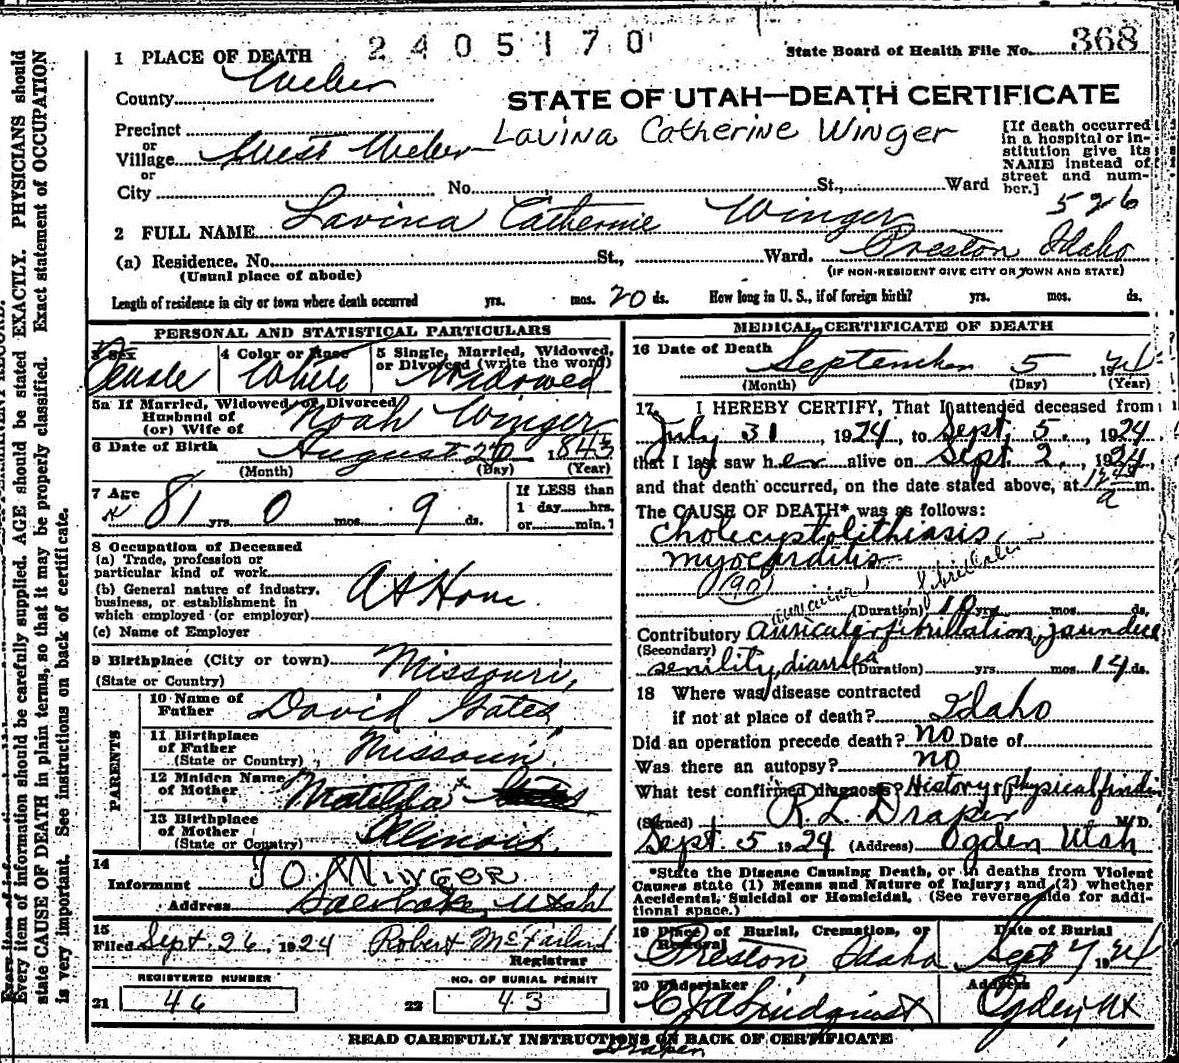 2405170
State Board of Health File No. 368
1 PLACE OF DEATH
County Weber
STATE OF UTAH—DEATH CERTIFICATE
Precinct
or
Village West Weber
or
City
Lavina Catherine Winger
No. St., Ward
[If death occurred in a hospital or institution give its NAME instead of street and number.]
526
2 FULL NAME Lavina Catherine Winger
(a) Residence. No. St., Ward. Preston Idaho
(Usual place of abode)
(IF NON-RESIDENT GIVE CITY OR TOWN AND STATE)
Length of residence in city or town where death occurred yrs. mos. 20 ds. How long in U. S., if of foreign birth? yrs. mos. ds.
PERSONAL AND STATISTICAL PARTICULARS
3 Sex
Female
4 Color or Race
White
5 Single, Married, Widowed,
or Divorced (write the word)
Widowed
5a If Married, Widowed or Divorced
Husband of
(or) Wife of
Noah Winger
6 Date of Birth
August 26 1843
(Month) (Day) (Year)
7 Age
81 yrs. 0 mos. 9 ds.
If LESS than
1 day hrs.
or min.?
8 Occupation of Deceased
(a) Trade, profession or
particular kind of work
(b) General nature of industry,
business, or establishment in
which employed (or employer)
At Home
(c) Name of Employer
9 Birthplace (City or town)
(State or Country)
Missouri,
PARENTS
10 Name of
Father
David Gates
11 Birthplace
of Father
(State or Country)
Missouri
12 Maiden Name
of Mother
Matilda
13 Birthplace
of Mother
(State or Country)
Illinois.
14
Informant J O. WINGER
Address Salt Lake, Utah
15
Filed Sept. 26, 1924 Robert McFarland
Registrar
REGISTERED NUMBER
21 46
NO. OF BURIAL PERMIT
22 43
MEDICAL CERTIFICATE OF DEATH
16 Date of Death
September 5 1924
(Month) (Day) (Year)
17. I HEREBY CERTIFY, That I attended deceased from
July 31, 1924, to Sept. 5, 1924
that I last saw her alive on Sept. 2, 1924
and that death occurred, on the date stated above, at 12 a m.
The CAUSE OF DEATH* was as follows:
Cholecystolithiasis,
myocarditis
(90)
(Duration) 10 yrs. mos. ds.
Contributory auricular fibrillation, jaundice
(Secondary)
senility, diarrhea (Duration) yrs. mos. 14 ds.
18 Where was disease contracted
if not at place of death? Idaho
Did an operation precede death? no Date of
Was there an autopsy? no
What test confirmed diagnosis? History & physical findi
(Signed) R. L. Draper M.D.
Sept. 5 1924 (Address) Ogden Utah
*State the Disease Causing Death, or in deaths from Violent
Causes state (1) Means and Nature of Injury; and (2) whether
Accidental, Suicidal or Homicidal. (See reverse side for additional space.)
19 Place of Burial, Cremation, or
Removal
Preston, Idaho
Date of Burial
Sept 7 1924
20 Undertaker
Lindquist
Address
Ogden Ut
READ CAREFULLY INSTRUCTIONS ON BACK OF CERTIFICATE
Draper
Every item of information should be carefully supplied. AGE should be stated EXACTLY. PHYSICIANS should
state CAUSE OF DEATH in plain terms, so that it may be properly classified. Exact statement of OCCUPATION
is very important. See instructions on back of certificate.